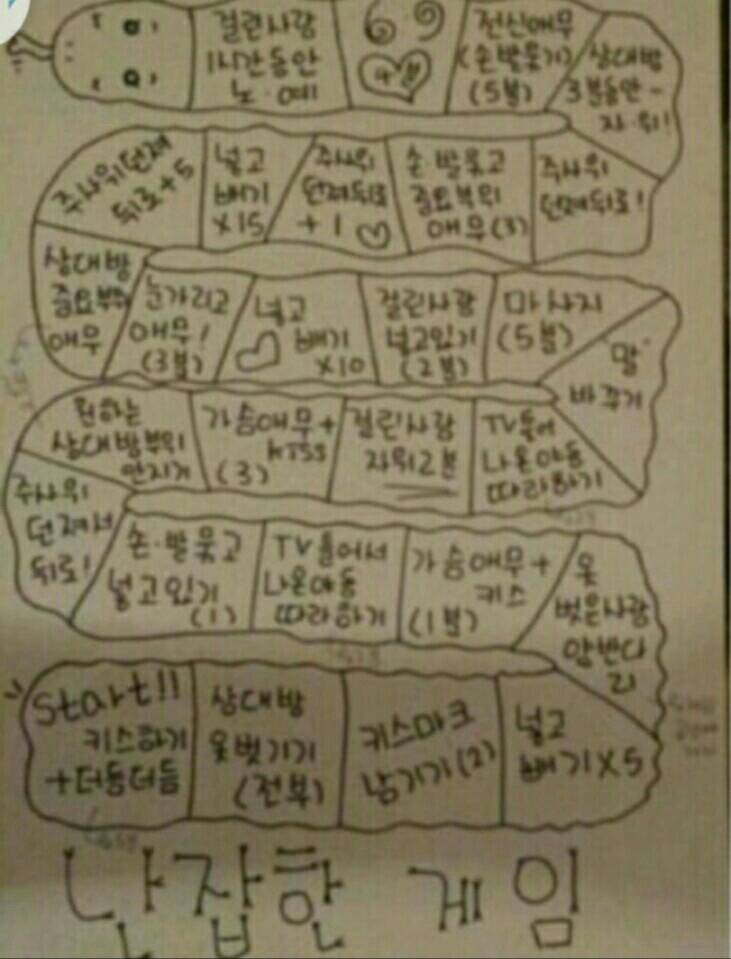 Start!!
키스하기
+더듬더듬
상대방
옷벗기기
(전부)
키스마크
남기기(2)
넣고
빼기X5
옷
벗은사람
손·발묶고
넣고있기
(1)
TV틀어서
나온야동
따라하기
가슴애무+
키스
(1분)
주사위
던져서
뒤로!
원하는
상대방부위
만지기
가슴애무+
kiss
(3)
걸린사람
자위2분
TV틀어
나온야동
따라하기
"말"
바꾸기
상대방
중요부위
애무
눈가리고
애무!
(3분)
넣고
빼기
X10
걸린사람
넣고있기
(2분)
마사지
(5분)
주사위던져
뒤로+5
넣고
빼기
X15
주사위
던져뒤로
+1
손·발묶고
중요부위
애무(3)
주사위
던져뒤로!
걸린사람
1시간동안
노·예
69
전신애무
(손발묶기)
(5분)
상대방
3분동안-
자·위!
난잡한 게임